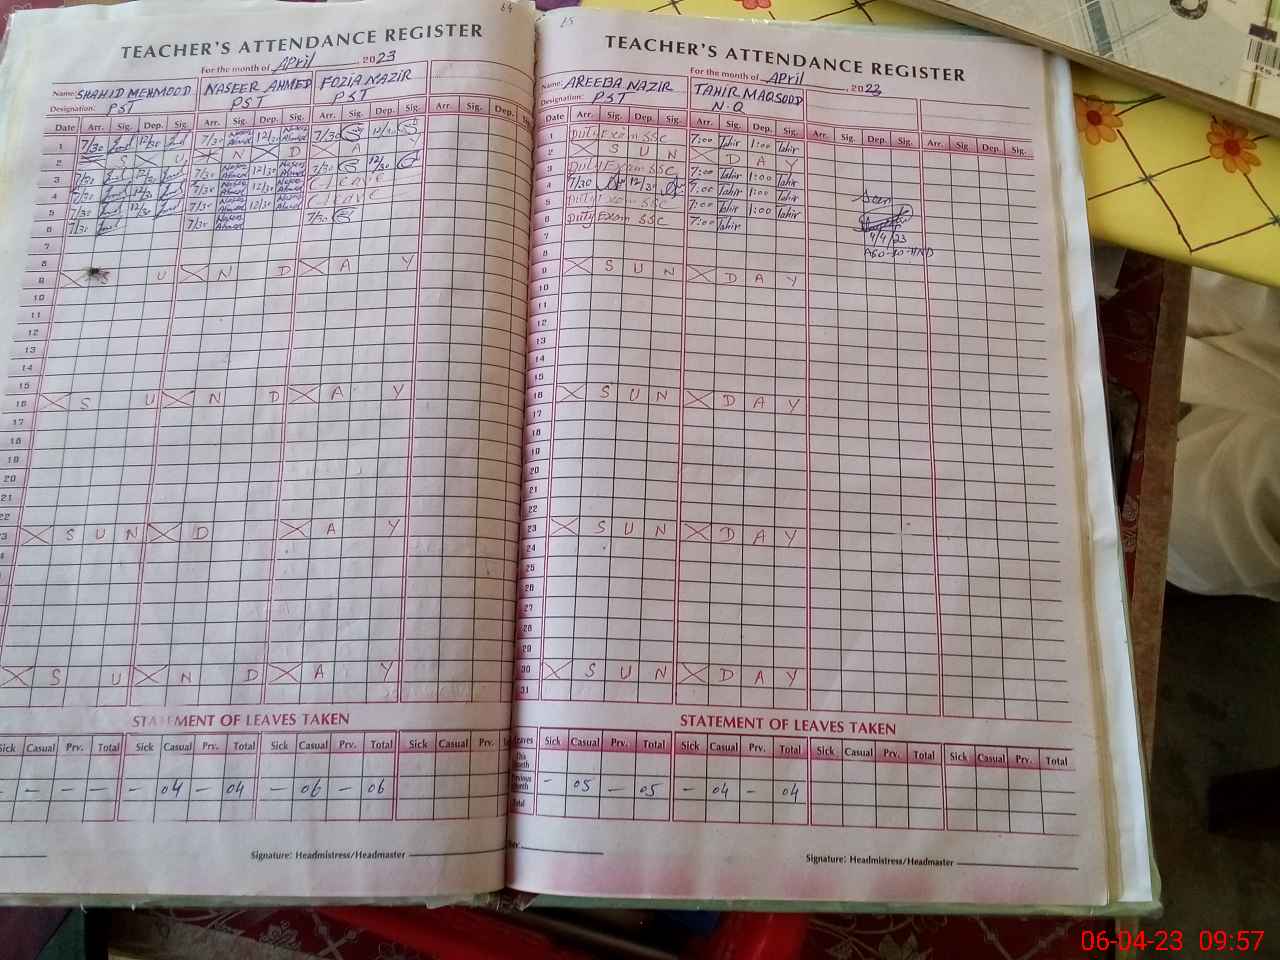 64
TEACHER'S ATTENDANCE REGISTER
For the month of April 2023
Name: SHAHID MEHMOOD NASEER AHMED FOZIA NAZIR
Designation: PST PST PST
Date Arr. Sig. Dep. Sig. Arr. Sig. Dep. Sig. Arr. Sig. Dep. Sig. Arr. Sig. Dep.
1 7/30 12/30 7/30 Naseer Ahmed 12/30 Naseer Ahmed 7/30 12/30
2 S U N D A Y
3 7/30 12/30 7/30 Naseer Ahmed 12/30 Naseer Ahmed 7/30 12/30
4 7/30 12/30 7/30 Naseer Ahmed 12/30 Naseer Ahmed C leave
5 7/30 12/30 7/30 Naseer Ahmed 12/30 Naseer Ahmed C leave
6 7/30 7/30 Naseer Ahmed 7/30
7
8
9 S U N D A Y
10
11
12
13
14
15
16 S U N D A Y
17
18
19
20
21
22
23 S U N D A Y
30 S U N D A Y
STATEMENT OF LEAVES TAKEN
Sick Casual Prv. Total Sick Casual Prv. Total Sick Casual Prv. Total Sick Casual Prv.
- - - - - 04 - 04 - 06 - 06
Signature: Headmistress/Headmaster
25
TEACHER'S ATTENDANCE REGISTER
For the month of April 2023
Name: AREEBA NAZIR TAHIR MAQSOOD
Designation: PST N.Q
Date Arr. Sig. Dep. Sig. Arr. Sig. Dep. Sig. Arr. Sig. Dep. Sig. Arr. Sig. Dep. Sig.
1 Duty Exam SSC 7:00 Tahir 1:00 Tahir
2 S U N D A Y
3 Duty Exam SSC 7:00 Tahir 1:00 Tahir
4 7/30 12/30 7:00 Tahir 1:00 Tahir
5 Duty Exam SSC 7:00 Tahir 1:00 Tahir
6 Duty Exam SSC 7:00 Tahir
Seen
4/4/23
7
8
9 S U N D A Y
10
11
12
13
14
15
16 S U N D A Y
17
18
19
20
21
22
23 S U N D A Y
24
25
26
27
28
29
30 S U N D A Y
31
STATEMENT OF LEAVES TAKEN
Leaves Sick Casual Prv. Total Sick Casual Prv. Total Sick Casual Prv. Total Sick Casual Prv. Total
This Month
Previous Month - 05 - 05 - 04 - 04
Total
Signature: Headmistress/Headmaster
06-04-23 09:57